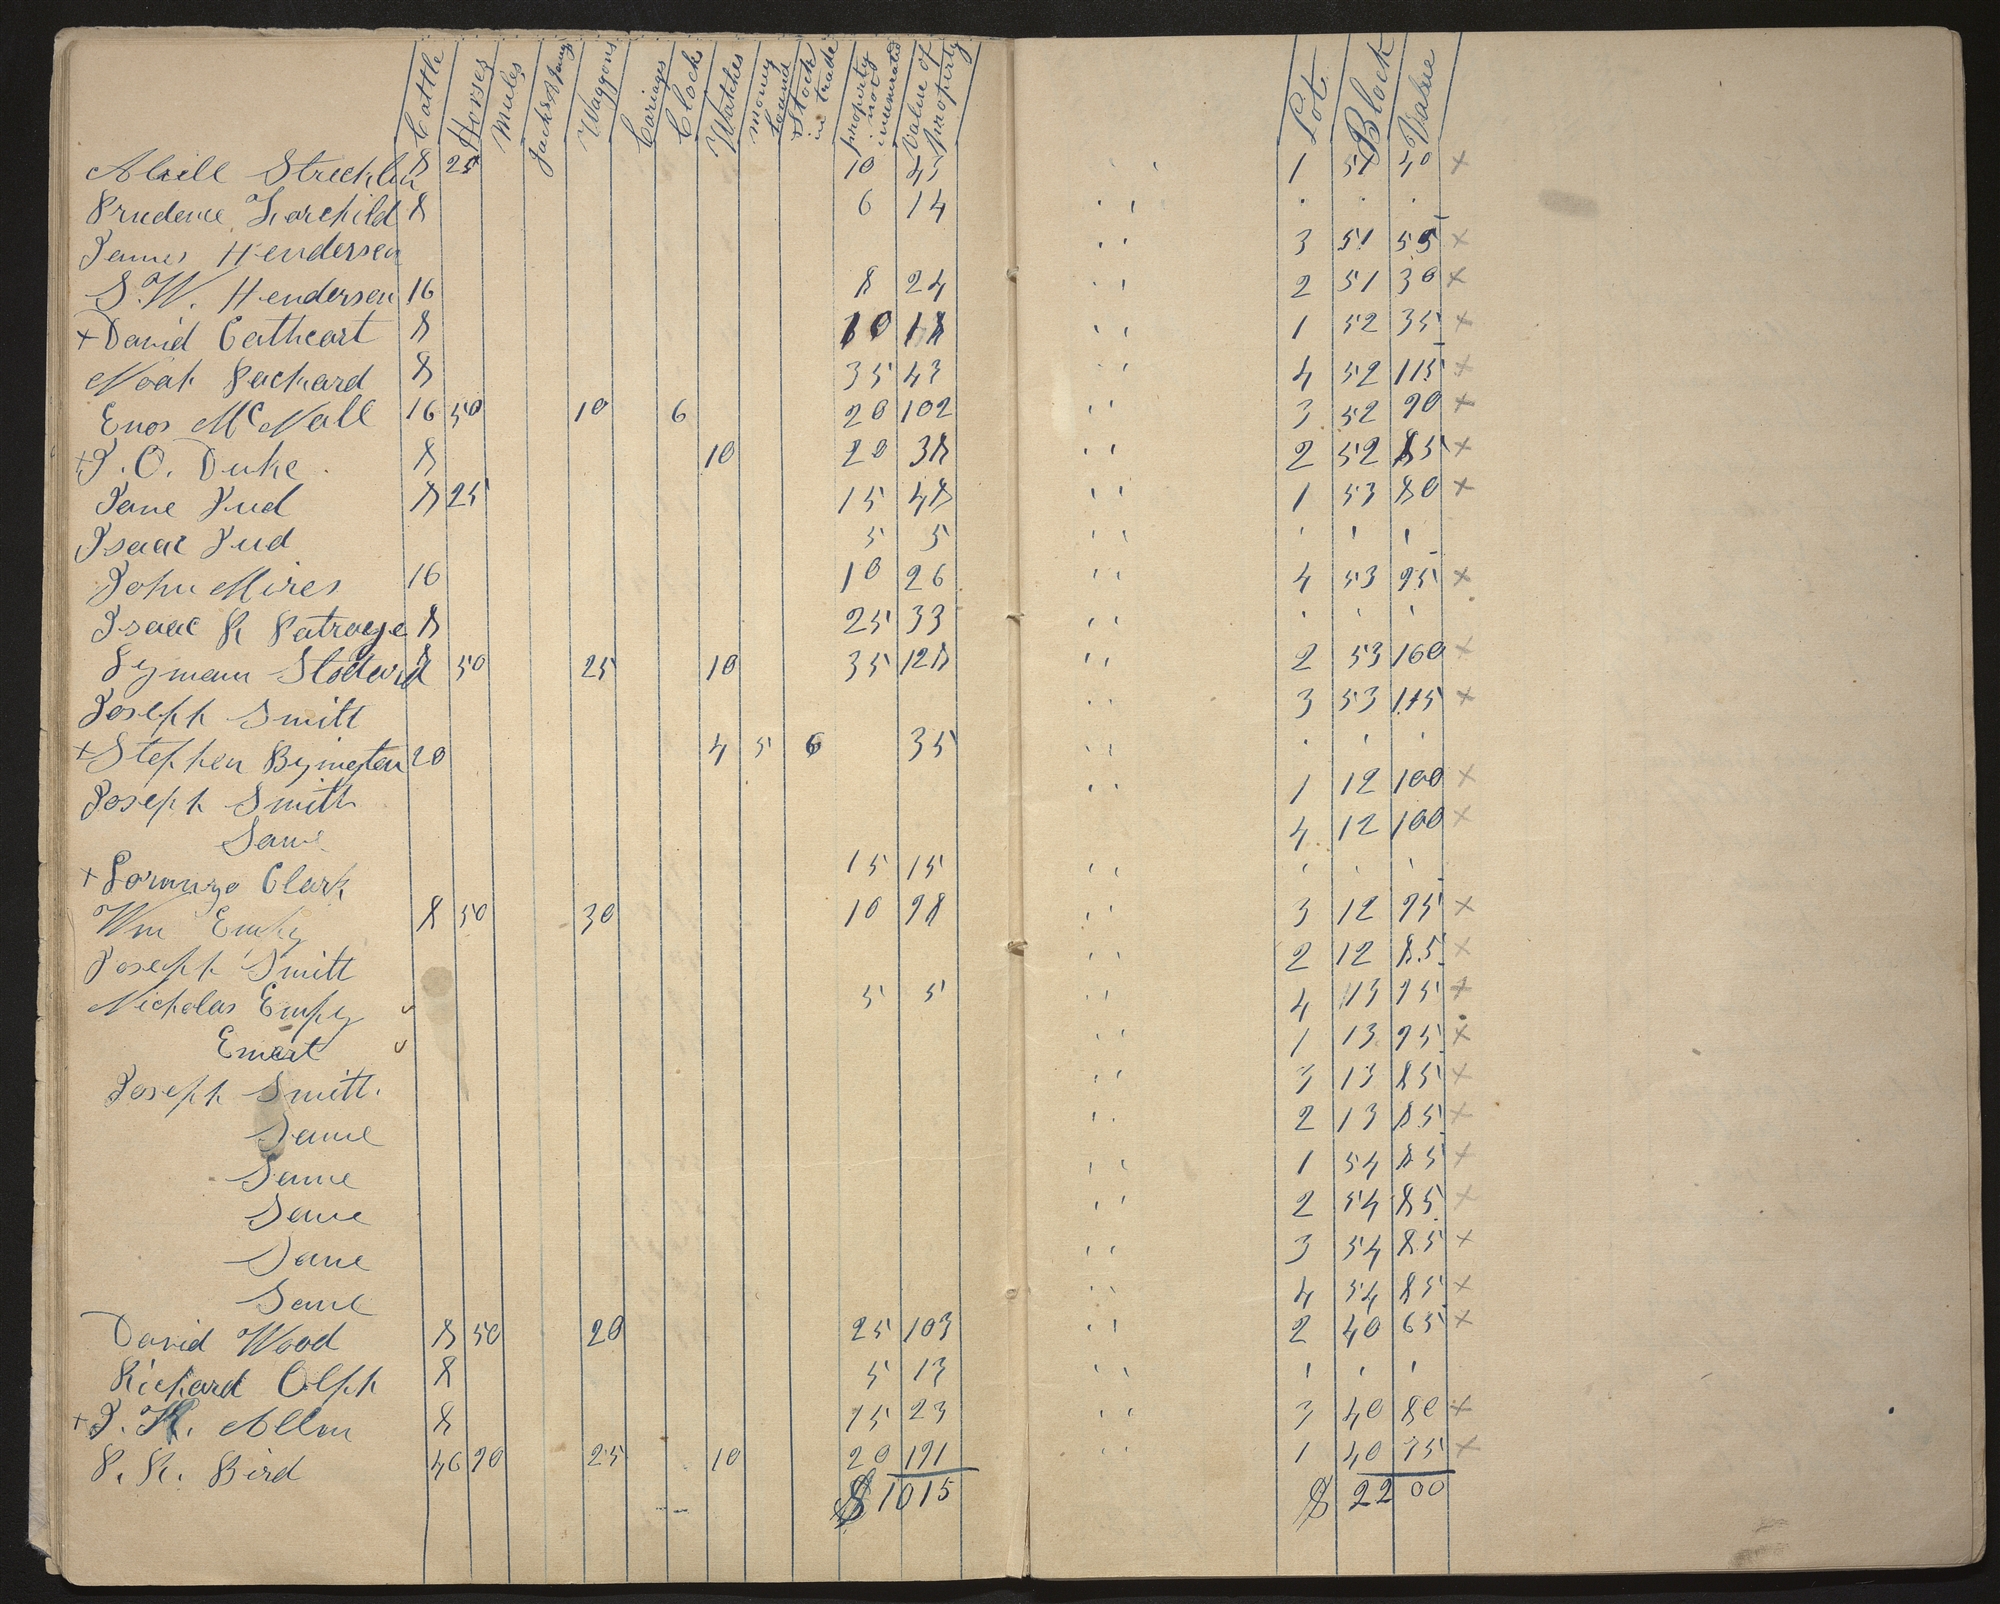 Cattle Horses Mules Jacks & Waggons Cariages Clocks Watches money loand Stock in trade property not inumerated Value of property Lot Block Value
Abiell Stricklin 8 25 10 43 1 51 40 ×
Prudence Farchild 8 6 14
James Henderson 3 51 55 ×
S. W. Henderson 16 8 24 2 51 30 ×
+ David Cathcart 8 10 18 1 52 35 ×
Noah Packard 8 35 43 4 52 115 ×
Enos McNall 16 50 10 6 20 102 3 52 90 ×
+ J. O. Duke 8 10 20 38 2 52 85 ×
Jane Jud 8 25 15 48 1 53 80 ×
Isaac Jud 5 5
John Mires 16 10 26 4 53 95 ×
Isaac R Patroye 8 25 33
Lyman Stodard 8 50 25 10 35 128 2 53 160 ×
Joseph Smith 3 53 115 ×
+ Stephen Byington 20 4 5 6 35
Joseph Smith 1 12 100 ×
Same 4 12 100 ×
+ Loranzo Clark 15 15
Wm Empy 8 50 30 10 98 3 12 95 ×
Joseph Smith 2 12 85 ×
Nicholas Empy 5 5 4 13 95 ×
Emert 1 13 95 ×
Joseph Smith. 3 13 85 ×
Same 2 13 85 ×
Same 1 54 85 ×
Same 2 54 85 ×
Same 3 54 85 ×
Same 4 54 85 ×
David Wood 8 50 20 25 103 2 40 65 ×
Richard Olph 8 5 13
+ J. K. Allen 8 15 23 3 40 80 ×
P. R. Bird 46 90 25 10 20 191 1 40 75 ×
$ 1015 $ 2200